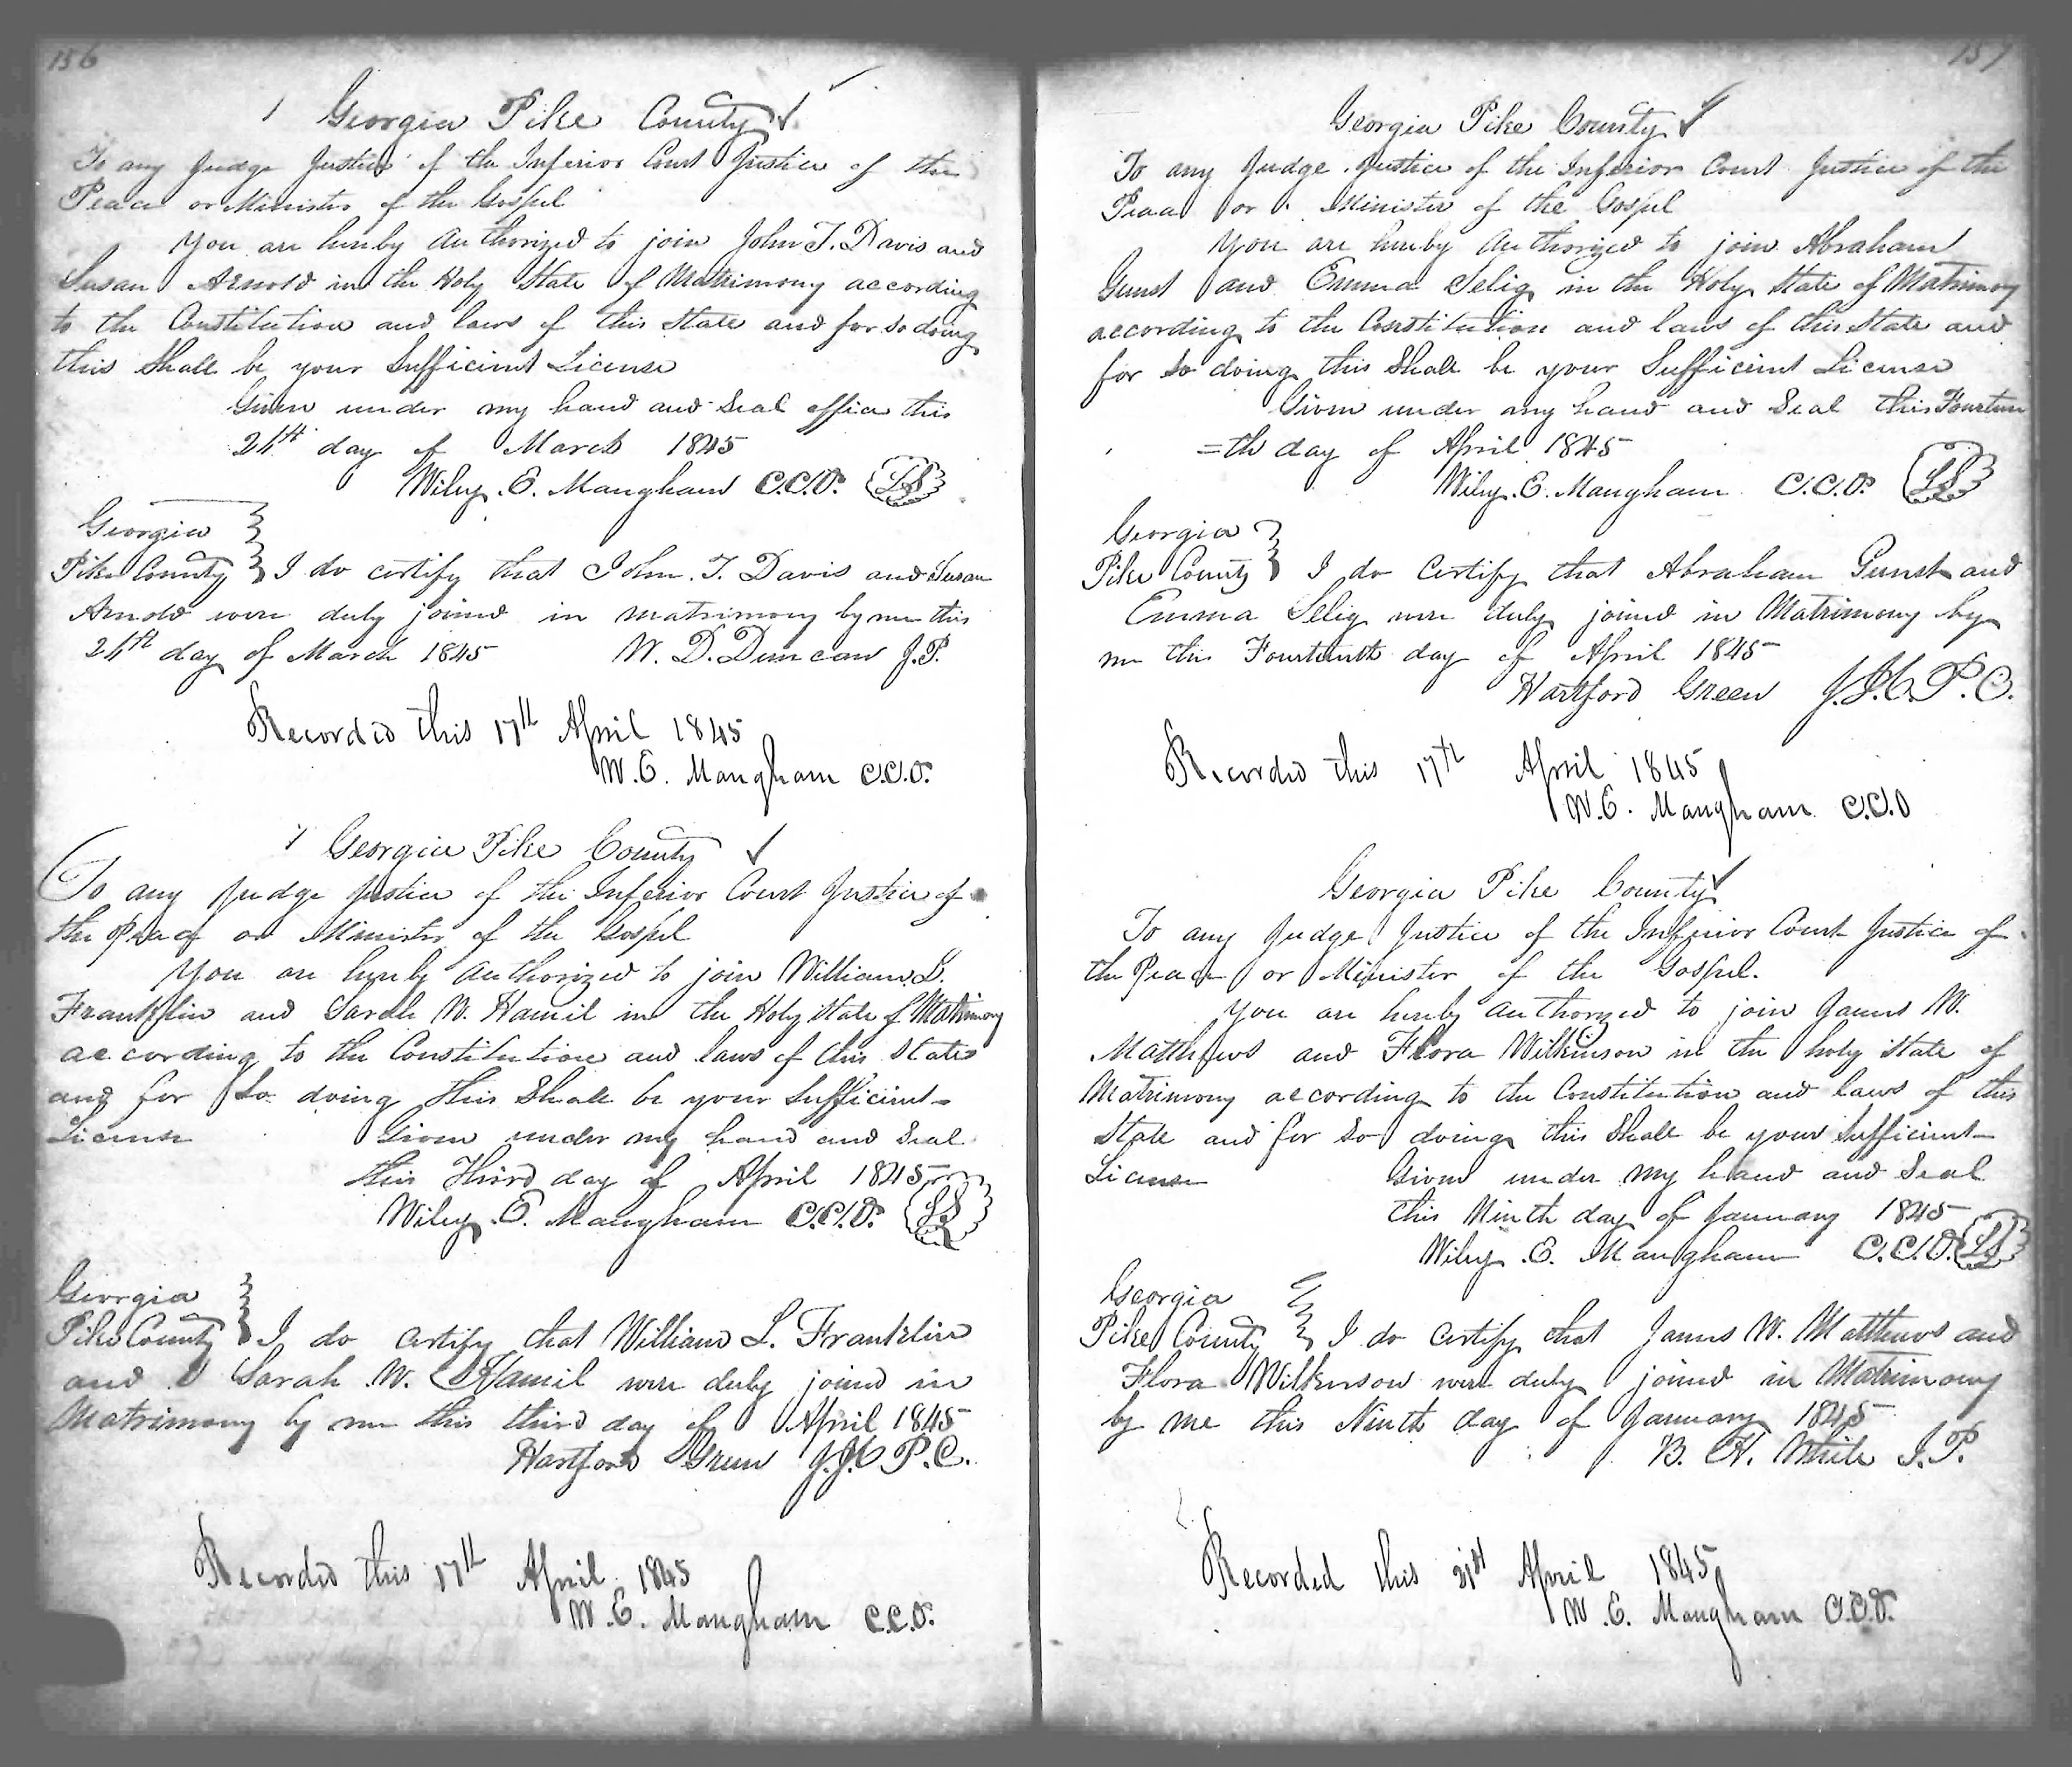 156
Georgia Pike County
To any Judge Justice of the Inferior Court Justice of the
Peace or Minister of the Gospel
You are hereby authorized to join John T. Davis and
Susan Arnold in the Holy State of Matrimony according
to the Constitution and laws of this State and for so doing
this Shall be your Sufficient License
Given under my hand and Seal office this
24th day of March 1845
Wiley. E. Mangham C.C.O. LS
Georgia
Pike County I do certify that John. T. Davis and Susan
Arnold were duly joined in matrimony by me this
24th day of March 1845 W. D. Duncan J.P.
Recorded this 17th April 1845
W. E. Mangham C.C.O.
Georgia Pike County
To any Judge Justice of the Inferior Court Justice of
the Peace or Minister of the Gospel
You are hereby authorized to join William L.
Franklin and Sarah W. Hamil in the Holy State of Matrimony
according to the Constitution and laws of this State
and for So doing this Shall be your Sufficient
License Given under my hand and Seal
this Third day of April 1845
Wiley. E. Mangham C.C.O. LS
Georgia
Pike County I do certify that William L. Franklin
and Sarah W. Hamil were duly joined in
Matrimony by me this third day of April 1845
Hartford Green J.I.C.P.C.
Recorded this 17th April 1845
W. E. Mangham C.C.O.
157
Georgia Pike County
To any Judge Justice of the Inferior Court Justice of the
Peace or Minister of the Gospel
You are hereby authorized to join Abraham
Gunst and Emma Selig in the Holy State of Matrimony
according to the Constitution and laws of this State and
for So doing this Shall be your Sufficient License
Given under my hand and Seal this Fourteen
=th day of April 1845
Wiley. E. Mangham C.C.O. LS
Georgia
Pike County I do certify that Abraham Gunst and
Emma Selig were duly joined in Matrimony by
me this Fourteenth day of April 1845
Hartford Green J.I.C.P.C.
Recorded this 17th April 1845
W. E. Mangham C.C.O
Georgia Pike County
To any Judge Justice of the Inferior Court Justice of
the Peace or Minister of the Gospel.
You are hereby authorized to join James W.
Matthews and Flora Wilkinson in the holy state of
Matrimony according to the Constitution and laws of this
State and for So doing this Shall be your Sufficient
License Given under my hand and Seal
this Ninth day of January 1845
Wiley. E. Mangham C.C.O. LS
Georgia
Pike County I do certify that James W. Matthews and
Flora Wilkinson were duly joined in Matrimony
by me this Ninth day of January 1845
B. H. White J.P.
Recorded this 21st April 1845
W. E. Mangham C.C.O.